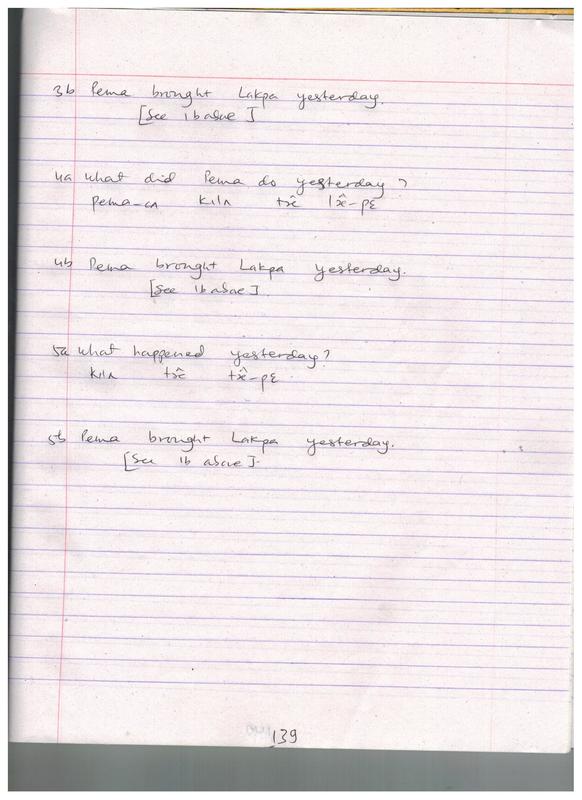 3b Pema brought Lakpa yesterday.
[See 1b above]
4a What did Pema do yesterday?
pema-ɕʌ kʌlʌ tɕɛ̂ lɛ̂-pɛ
4b Pema brought Lakpa yesterday.
[See 1b above].
5a What happened yesterday?
kʌlʌ
5b Pema brought Lakpa yesterday.
[See 1b above].
139